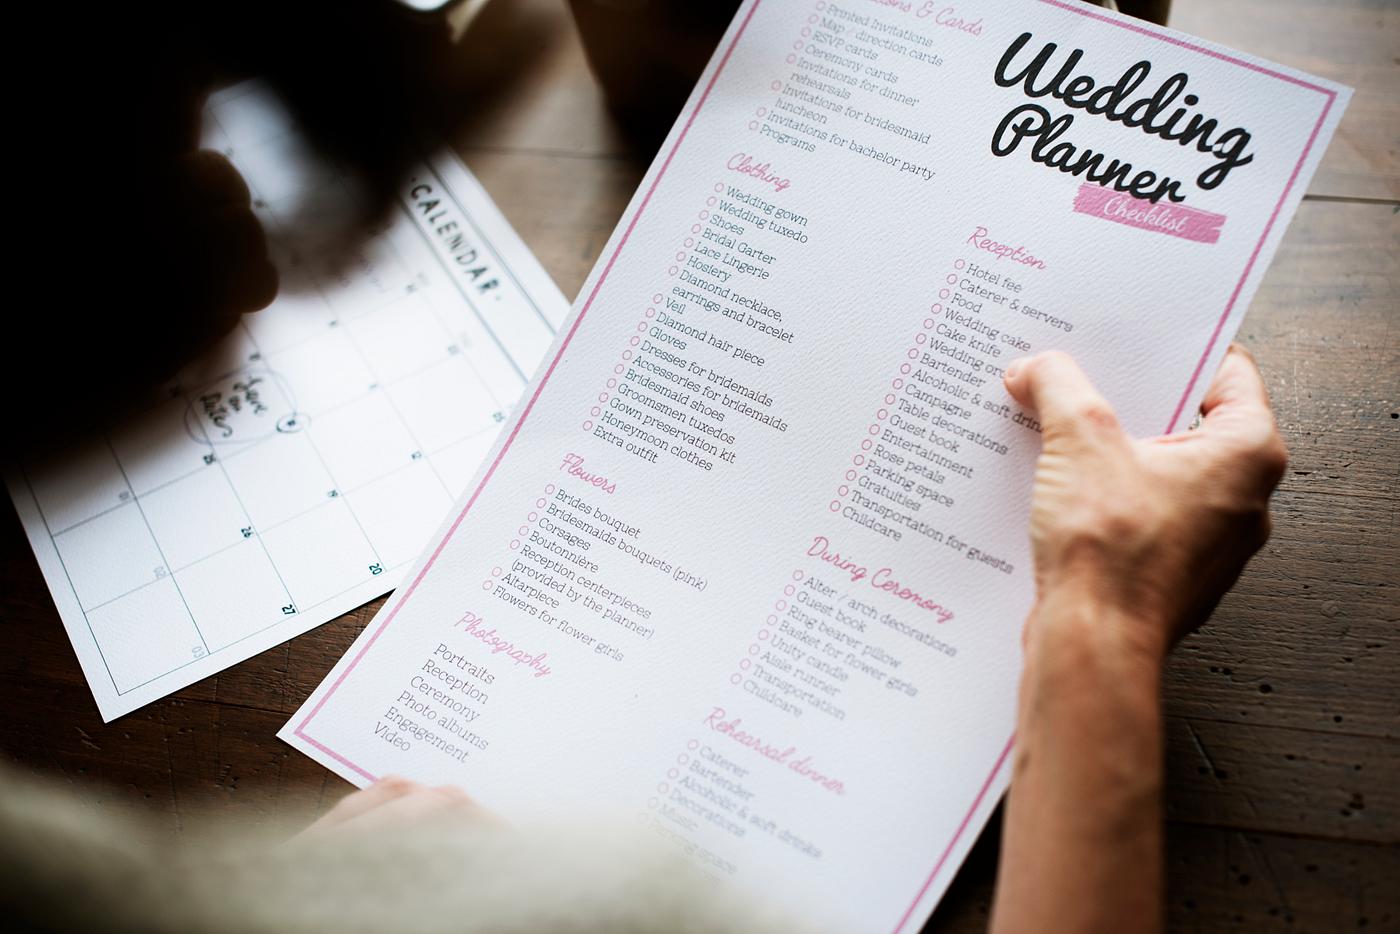 Wedding
Planner
Checklist
& Cards
Printed Invitations
Map / direction cards
RSVP cards
Ceremony cards
Invitations for dinner
rehearsals
Invitations for bridesmaid
luncheon
Invitations for bachelor party
Programs
Clothing
Wedding gown
Wedding tuxedo
Shoes
Bridal Garter
Lace Lingerie
Hosiery
Diamond necklace,
earrings and bracelet
Veil
Diamond hair piece
Gloves
Dresses for bridemaids
Accessories for bridemaids
Bridesmaid shoes
Groomsmen tuxedos
Gown preservation kit
Honeymoon clothes
Extra outfit
Flowers
Brides bouquet
Bridesmaids bouquets (pink)
Corsages
Boutonnière
Reception centerpieces
(provided by the planner)
Altarpiece
Flowers for flower girls
Photography
Portraits
Reception
Ceremony
Photo albums
Engagement
Video
Reception
Hotel fee
Caterer & servers
Food
Wedding cake
Cake knife
Wedding
Bartender
Alcoholic & soft
Campagne
Table decorations
Guest book
Entertainment
Rose petals
Parking space
Gratuities
Transportation for guests
Childcare
During Ceremony
Alter / arch decorations
Guest book
Ring bearer pillow
Basket for flower girls
Unity candle
Aisle runner
Transportation
Childcare
Rehearsal dinner
Caterer
Bartender
Alcoholic & soft drinks
Decorations
Music
Parking space
CALENDAR
Save
Our
Date
26
20
27
02
03